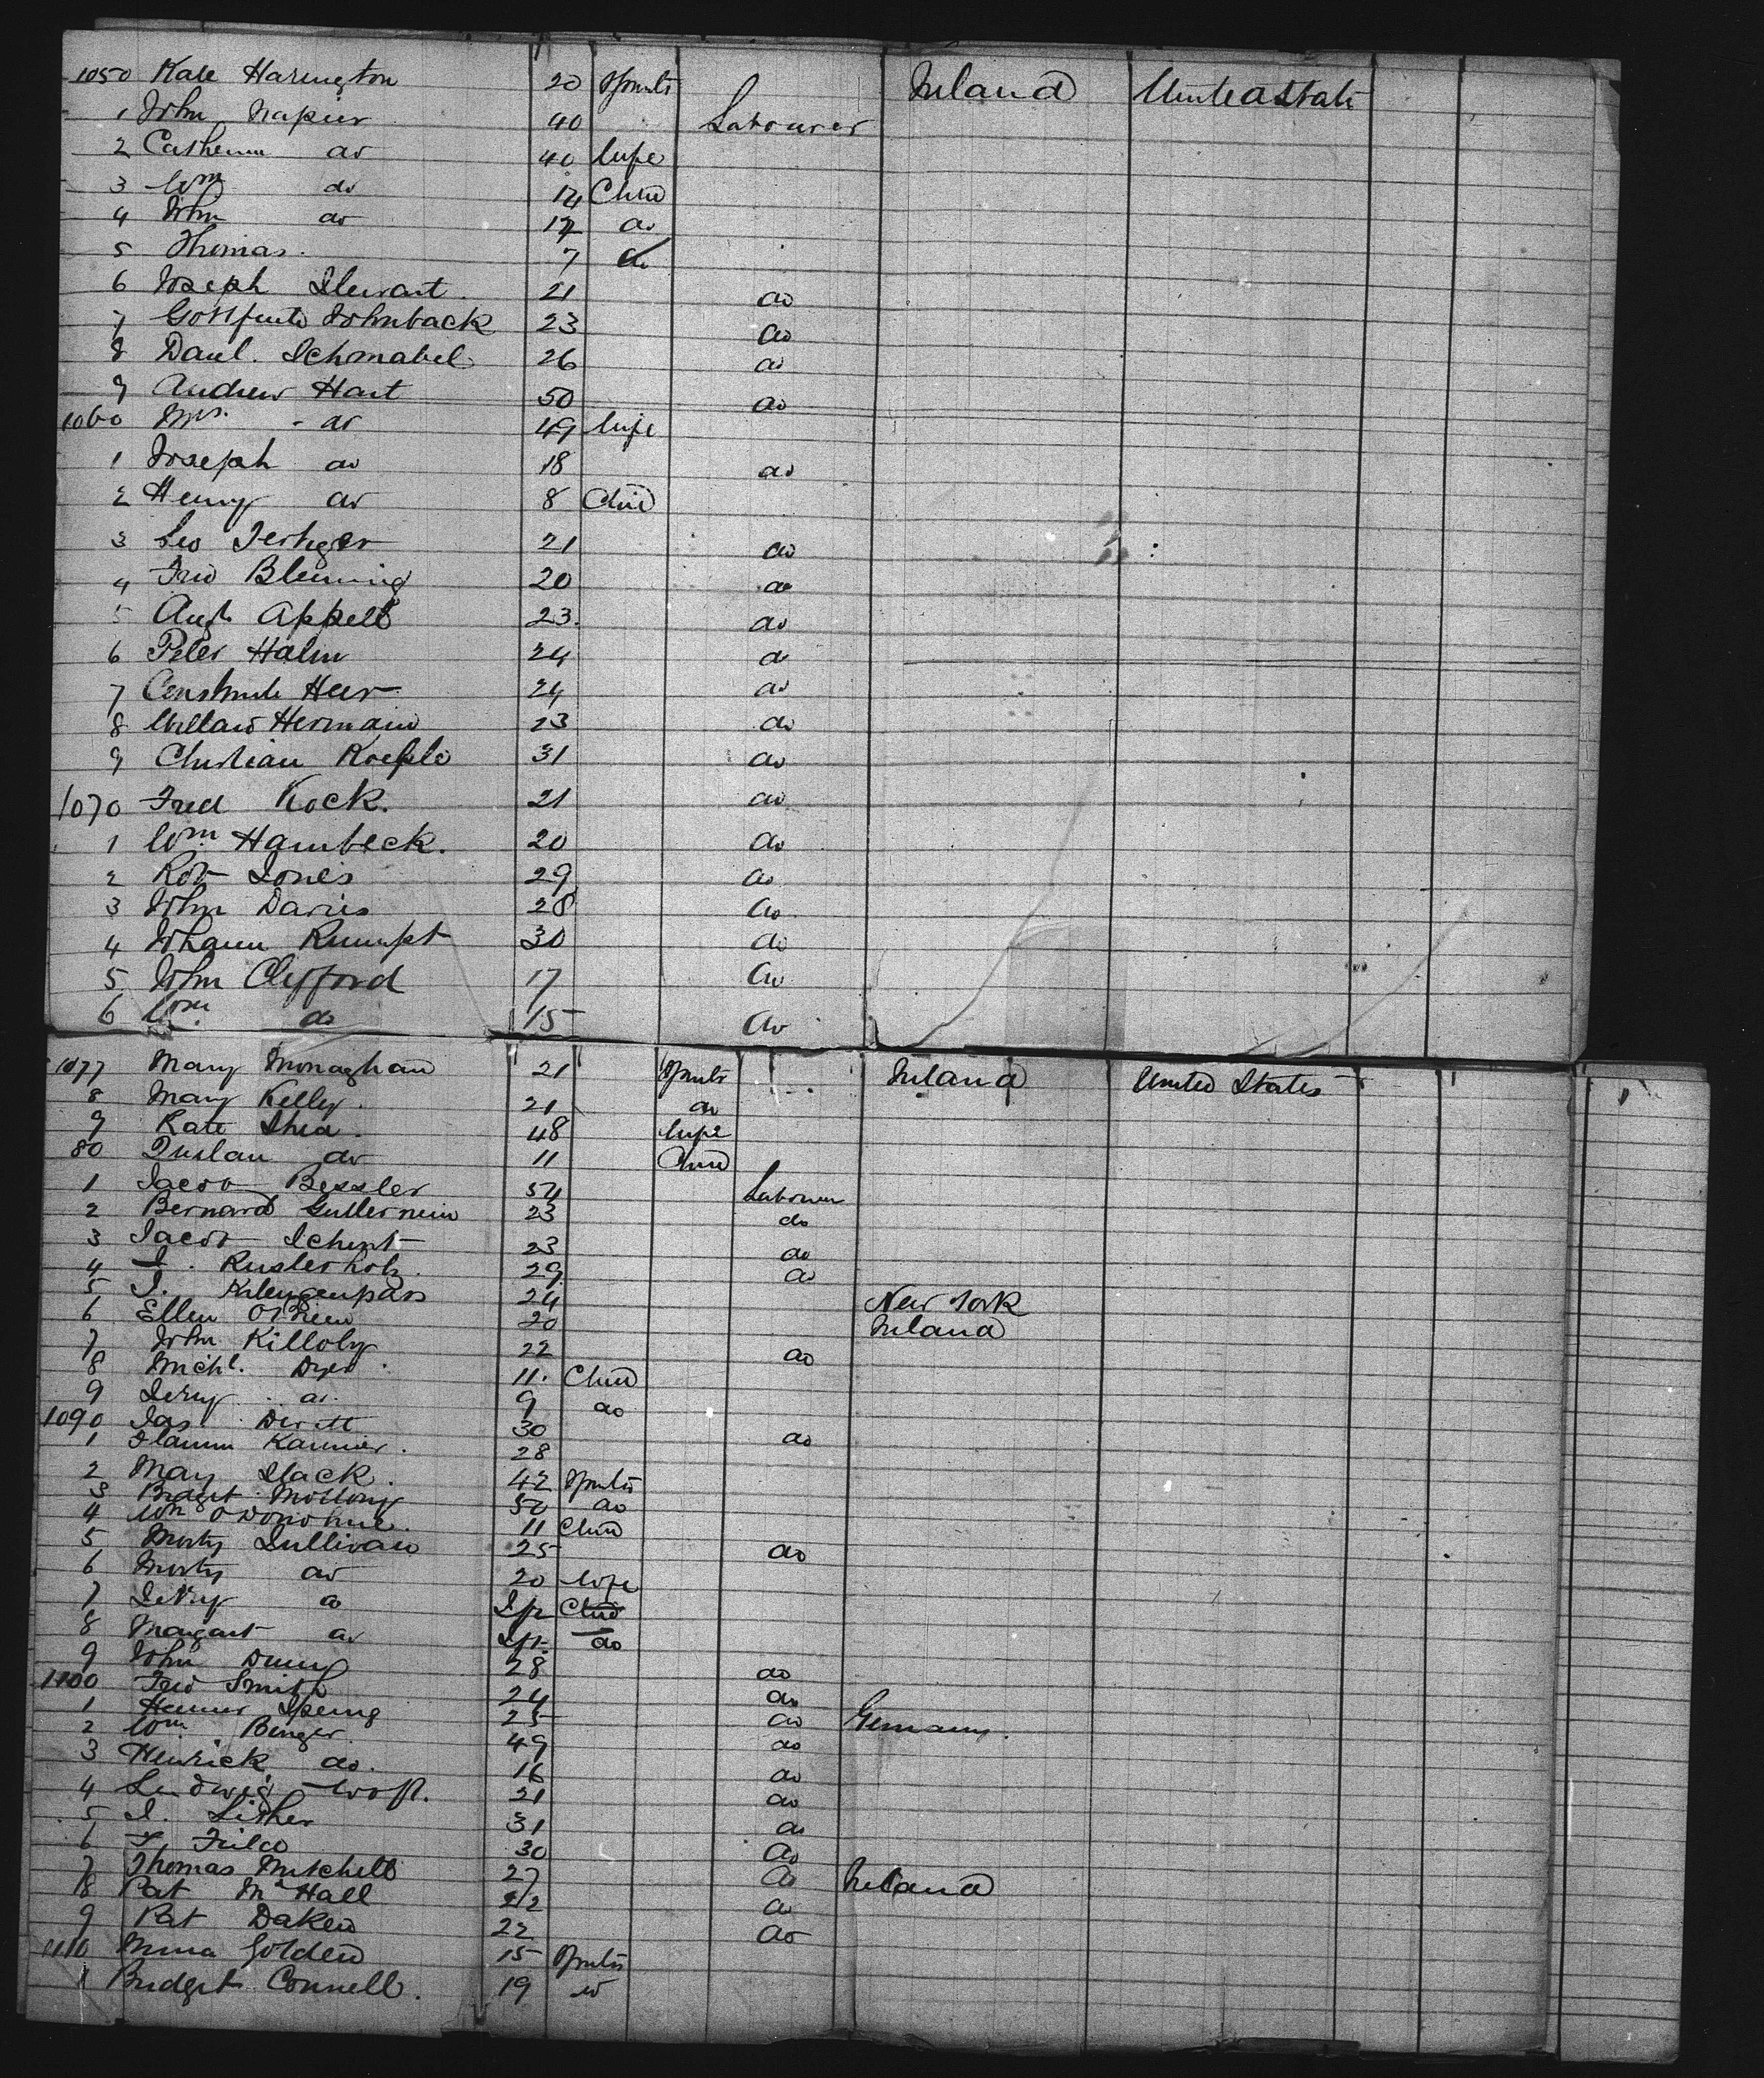 1050 Kate Harington 20 Spinstr Ireland United State
1 John Napier 40 Labourer
2 Catherine do 40 Wife
3 Wm do 14 Child
4 John do 12 do
5 Thomas 7 do
6 Joseph Stewart 21 do
7 Johnback 23 do
8 Danl. Schnabel 26 do
9 Andrew Hart 50 do
1060 Mrs. do 49 Wife
1 Joseph do 18 do
2 Henry do 8 Child
3 Leo 21 do
4 Fred Bleuming 20 do
5 Augt Appell 23 do
6 Peter Halm 24 do
7 Heer 24 do
8 Hermann 23 do
9 Christian Koeple 31 do
1070 Fred Kock. 21 do
1 Wm Hambeck. 20 do
2 Robt Jones 29 do
3 John Davies 28 do
4 Johann Rumpt 30 do
5 John Clifford 17 do
6 Wm. do 15 do
1077 Mary Monaghan 21 Spinstr Ireland United States
8 Mary Kelly 21 do
9 Kate Shea 48 Wife
80 do 11 Child
1 Jacob Bessler 54 Labourer
2 Bernard 23 do
3 Jacob Schent 23 do
4 J. Rusterholz 29 do
5 J. Klengenpass 24 New York
6 Ellen OBrien 20 Ireland
7 John Killoby 22 do
8 Michl. Dyer 11 Child
9 do 9 do
1090 Jas. 30 do
1 28
2 Mary Slack 42 Spinstr
3 Bridget 50 do
4 Wm O'Donohue 11 Child
5 Morty Sullivan 25 do
6 Morty do 20 Wife
7 do Inft Child
8 Margaret do Inft do
9 John 28 do
1100 Fred Smith 24 do
1 25 do Germany
2 Wm Binger 49 do
3 Heinrick do 16 do
4 Ludwig 21 do
5 J. Lither 31 do
6 30 do
7 Thomas Mitchell 27 do Ireland
8 Pat McHall 22 do
9 Pat Daken 22 do
1110 Golden 15 Spinstr
1 Bridget Connell. 19 do